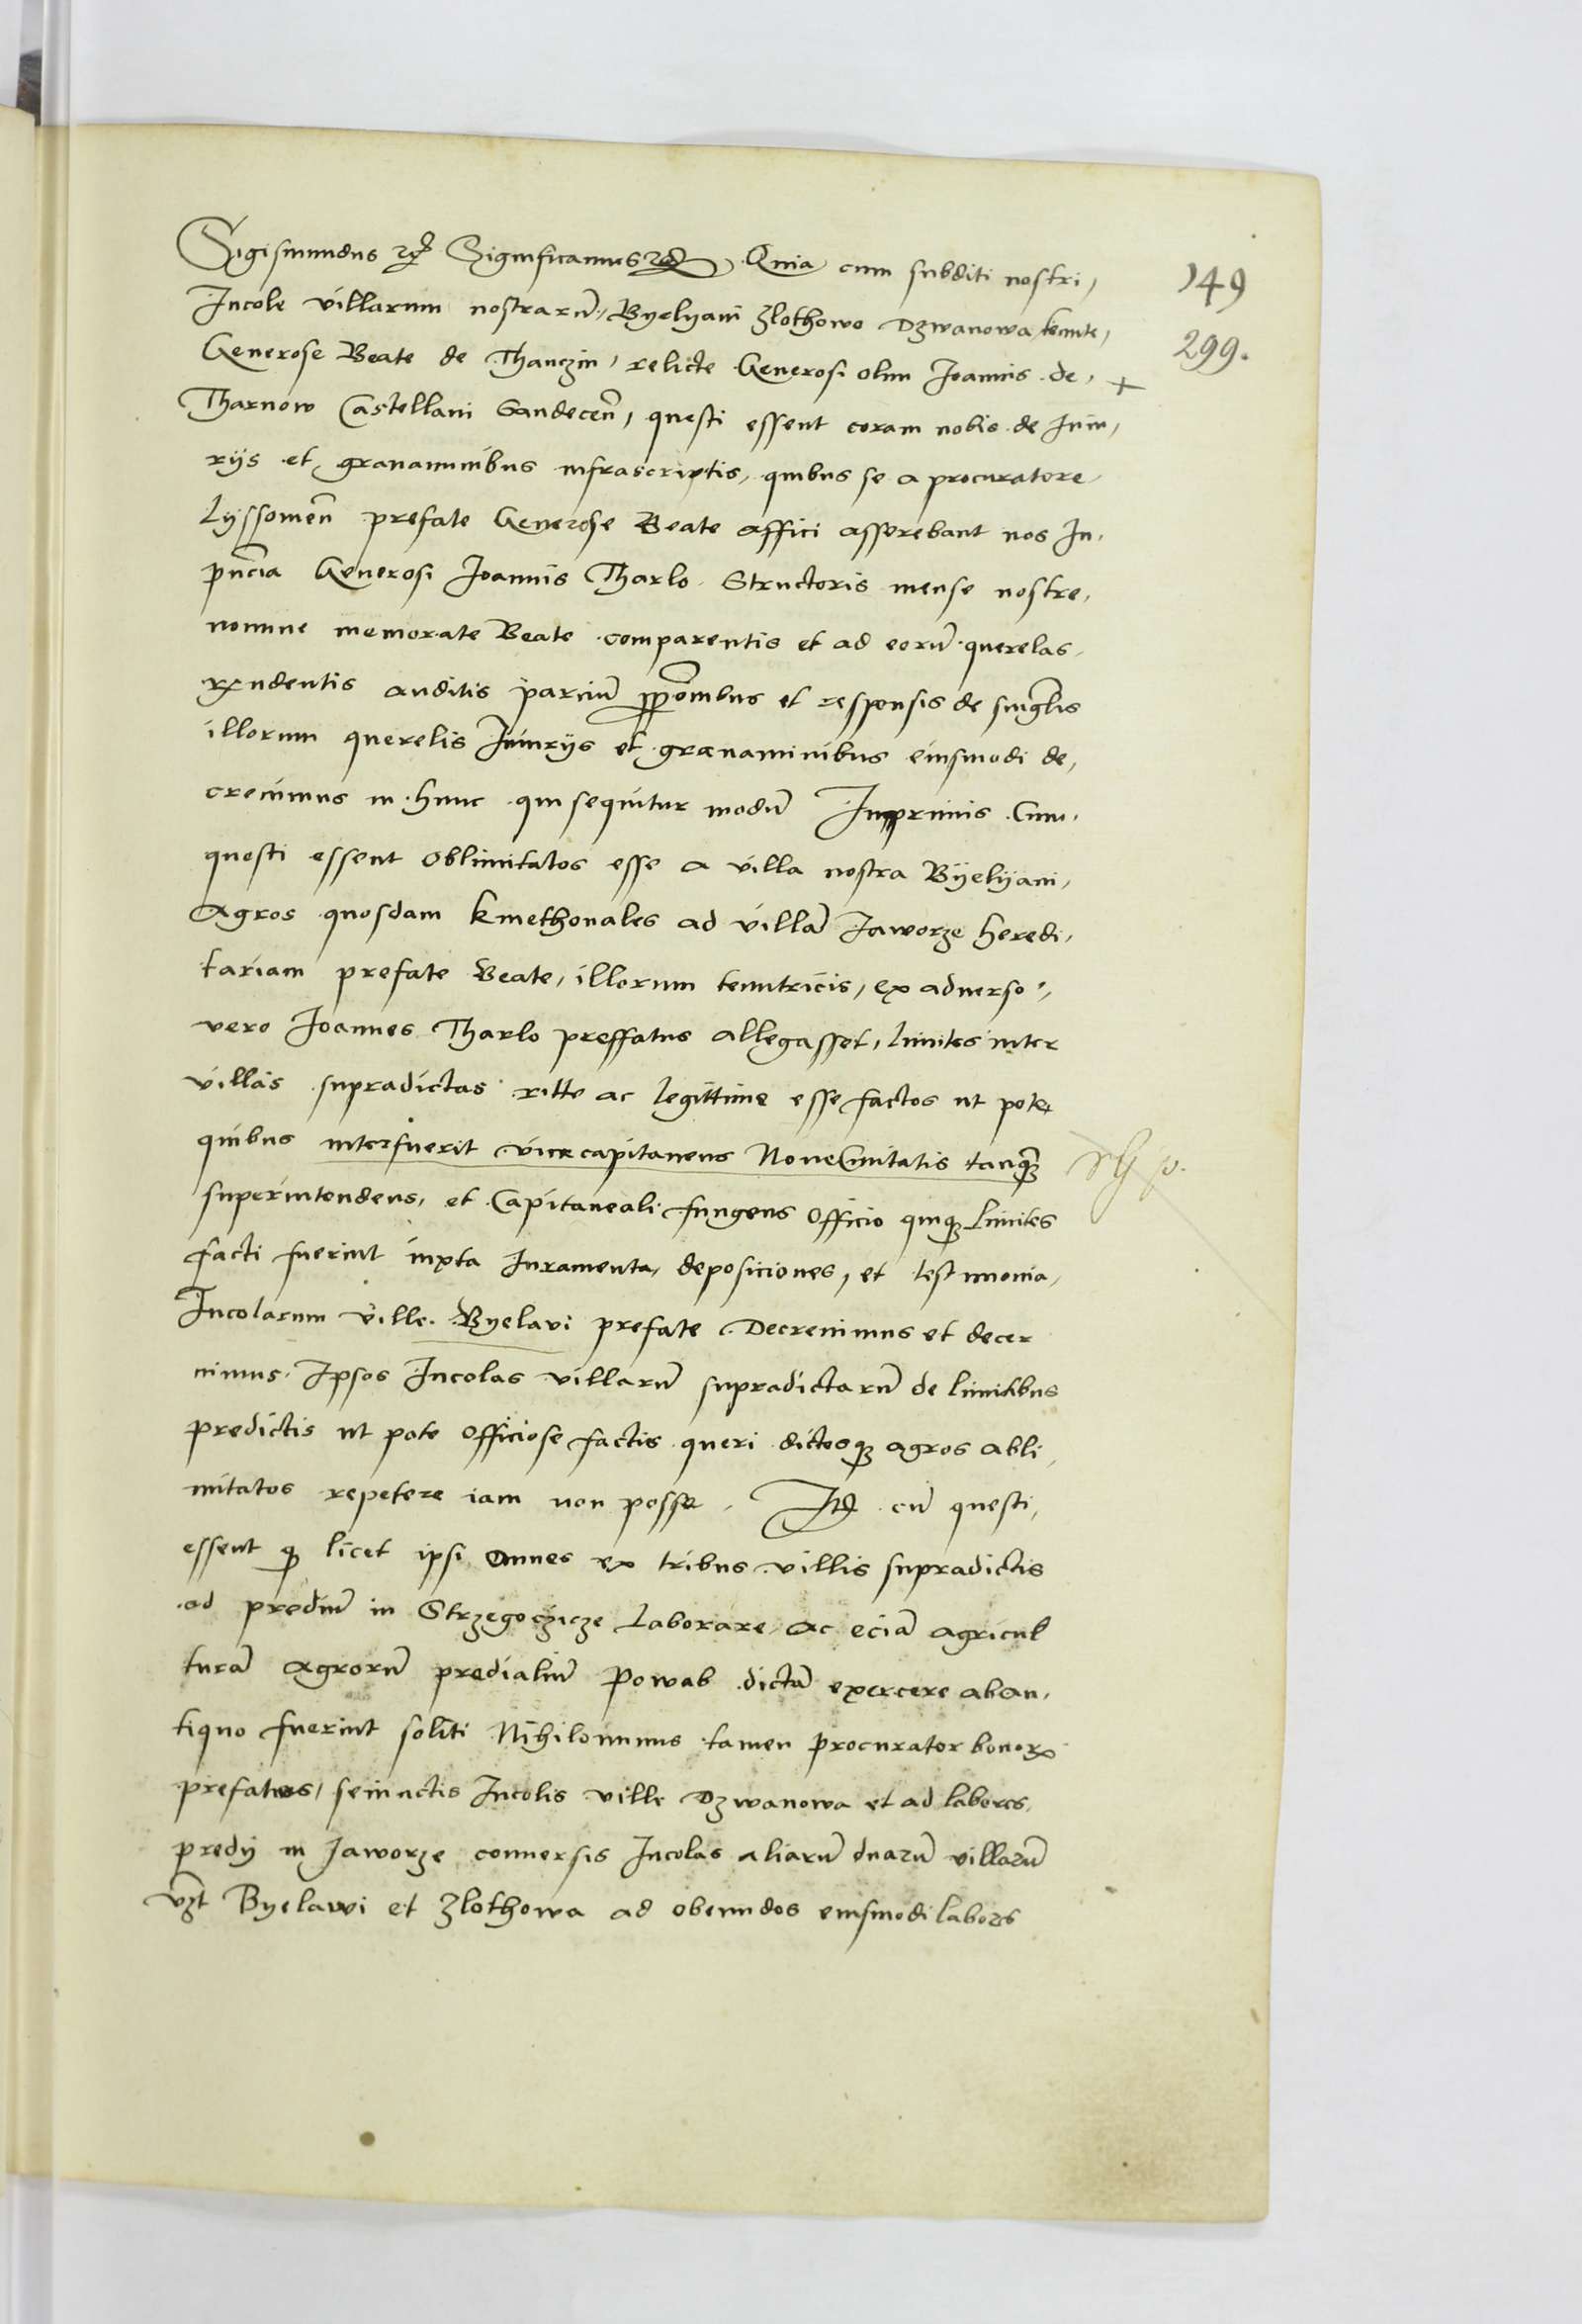 Sigismundus etc. Significamus etc. Quia cum subditi nostri,
Incole villarum nostrarū, Byelyani Zlothowo Dzwanowa tenute,
Generose Beate de Thanczin, relicte Generosi olim Joannis de,
Tharnow Castellani Sandeceñ, questi essent coram nobis de Iniu,
rijs et grauaminibus infrascriptis, quibus se a procuratore
Lyssomeñ prefate Generose Beate affici asserebant nos In,
pñcia Generosi Joannis Tharlo Structoris mense nostre,
nomine memorate Beate comparentis et ad eorū querelas
rñdentis auditis parciū ppōnibus et responsis de singlis
illorum querelis Iniurijs et grauaminibus eiusmodi de,
creuimus in hunc qui sequitur modū Inprimis Cum,
questi essent oblimitatos esse a villa nostra Byelyani,
Agros quosdam kmethonales ad villā Jaworze heredi,
tariam prefate Beate, illorum tenutricis, ex aduerso,
vero Joannes Tharlo preffatus allegasset, limites inter
villas supradictas ritte ac legittime esse factos ut pote
quibus interfuerit vicecapitaneus NoueCiuitatis tanq̄
superintendens, et Capitaneali fungens officio quiq3 limites
facti fuerint iuxta Iuramenta, deposiciones, et testimonia,
Incolarum ville Byelaui prefate Decreuimus et decer
nimus Ipsos Incolas villarū supradictarū de limitibus
predictis ut pote officiose factis queri dictosq3 agros abli,
mitatos repetere iam non posse. Itē cū questi,
essent q3 licet ipsi omnes ex tribus villis supradictis
ad prediū in Strzegoczicze laborare, ac eciā agricul
turā agrorū predialiū Powab dictā exercere aban,
tiquo fuerint soliti Nihilominus tamen procurator bonorx
prefatus, seiunctis Incolis ville Dzwanowa et ad labores,
predij in Jaworze conuersis Incolas aliarū duarū villarū
vzt Byelawi et Zlothowa ad obeundos eiusmodi labores
149
299.
+